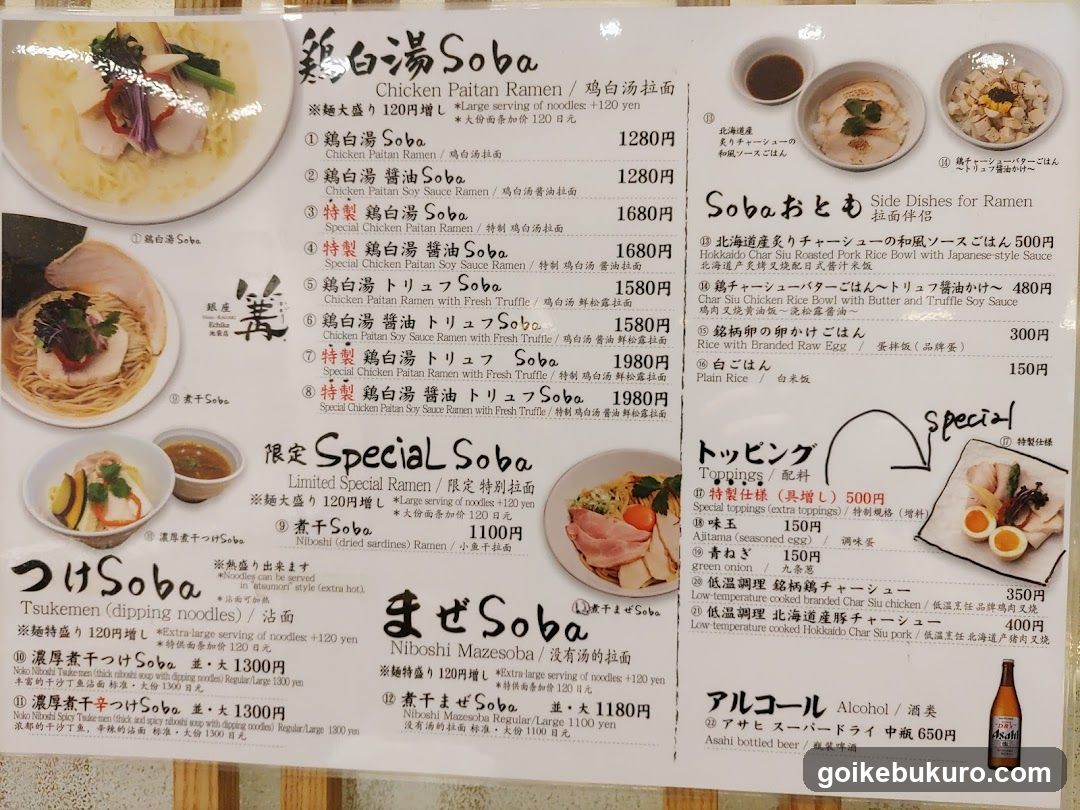 鶏白湯Soba
Chicken Paitan Ramen / 鸡白汤拉面
※麺大盛り 120円増し *Large serving of noodles: +120 yen
*大份面条加价 120 日元
① 鶏白湯 Soba 1280円
Chicken Paitan Ramen / 鸡白汤拉面
② 鶏白湯 醤油 Soba 1280円
Chicken Paitan Soy Sauce Ramen / 鸡白汤酱油拉面
③ 特製 鶏白湯 Soba 1680円
Special Chicken Paitan Ramen / 特制 鸡白汤拉面
④ 特製 鶏白湯 醤油 Soba 1680円
Special Chicken Paitan Soy Sauce Ramen / 特制 鸡白汤 酱油拉面
⑤ 鶏白湯 トリュフ Soba 1580円
Chicken Paitan Ramen with Fresh Truffle / 鸡白汤 鲜松露拉面
⑥ 鶏白湯 醤油 トリュフ Soba 1580円
Chicken Paitan Soy Sauce Ramen with Fresh Truffle / 鸡白汤 酱油 鲜松露拉面
⑦ 特製 鶏白湯 トリュフ Soba 1980円
Special Chicken Paitan Ramen with Fresh Truffle / 特制 鸡白汤 鲜松露拉面
⑧ 特製 鶏白湯 醤油 トリュフ Soba 1980円
Special Chicken Paitan Soy Sauce Ramen with Fresh Truffle / 特制 鸡白汤 酱油 鲜松露拉面
① 鶏白湯 Soba
銀座
篝
Echika
池袋店
⑨ 煮干 Soba
限定 Special Soba
Limited Special Ramen / 限定 特别拉面
※麺大盛り 120円増し *Large serving of noodles: +120 yen
*大份面条加价 120 日元
⑨ 煮干 Soba 1100円
Niboshi (dried sardines) Ramen / 小鱼干拉面
⑩ 濃厚煮干つけSoba
つけSoba
※熱盛り出来ます
*Noodles can be served
in "atsumori" style (extra hot).
*沾面可加热
Tsukemen (dipping noodles) / 沾面
※麺特盛り 120円増し *Extra-large serving of noodles: +120 yen
*特供面条加价 120 日元
⑩ 濃厚煮干つけSoba 並・大 1300円
Noko Niboshi Tsuke-men (thick niboshi soup with dipping noodles) Regular/Large 1300 yen
丰富的干沙丁鱼沾面 标准・大份 1300 日元
⑪ 濃厚煮干辛つけSoba 並・大 1300円
Noko Niboshi Spicy Tsuke-men (thick and spicy niboshi soup with dipping noodles) Regular/Large 1300 yen
浓郁的干沙丁鱼，辛辣的沾面 标准・大份 1300 日元
⑫煮干まぜSoba
まぜSoba
Niboshi Mazesoba / 没有汤的拉面
※麺特盛り 120円増し *Extra-large serving of noodles: +120 yen
*特供面条加价 120 日元
⑫ 煮干まぜSoba 並・大 1180円
Niboshi Mazesoba Regular/Large 1100 yen
没有汤的拉面 标准・大份 1100 日元
⑬ 北海道産
炙りチャーシューの
和風ソースごはん
⑭ 鶏チャーシューバターごはん
～トリュフ醤油かけ～
Sobaおとも Side Dishes for Ramen
拉面伴侣
⑬ 北海道産炙りチャーシューの和風ソースごはん 500円
Hokkaido Char Siu Roasted Pork Rice Bowl with Japanese-style Sauce
北海道产炙烤叉烧配日式酱汁米饭
⑭ 鶏チャーシューバターごはん～トリュフ醤油かけ～ 480円
Char Siu Chicken Rice Bowl with Butter and Truffle Soy Sauce
鸡肉叉烧黄油饭～浇松露酱油～
⑮ 銘柄卵の卵かけごはん 300円
Rice with Branded Raw Egg / 蛋拌饭（品牌蛋）
⑯ 白ごはん 150円
Plain Rice / 白米饭
special
⑰ 特製仕様
トッピング
Toppings / 配料
⑰ 特製仕様（具増し）500円
Special toppings (extra toppings) / 特制规格（增料）
⑱ 味玉 150円
Ajitama (seasoned egg) / 调味蛋
⑲ 青ねぎ 150円
green onion / 九条葱
⑳ 低温調理 銘柄鶏チャーシュー 350円
Low-temperature cooked branded Char Siu chicken / 低温烹饪 品牌鸡肉叉烧
㉑ 低温調理 北海道産豚チャーシュー 400円
Low-temperature cooked Hokkaido Char Siu pork / 低温烹饪 北海道产猪肉叉烧
アルコール Alcohol / 酒类
㉒ アサヒ スーパードライ 中瓶 650円
Asahi bottled beer / 瓶装啤酒
DRY
Asahi
goikebukuro.com